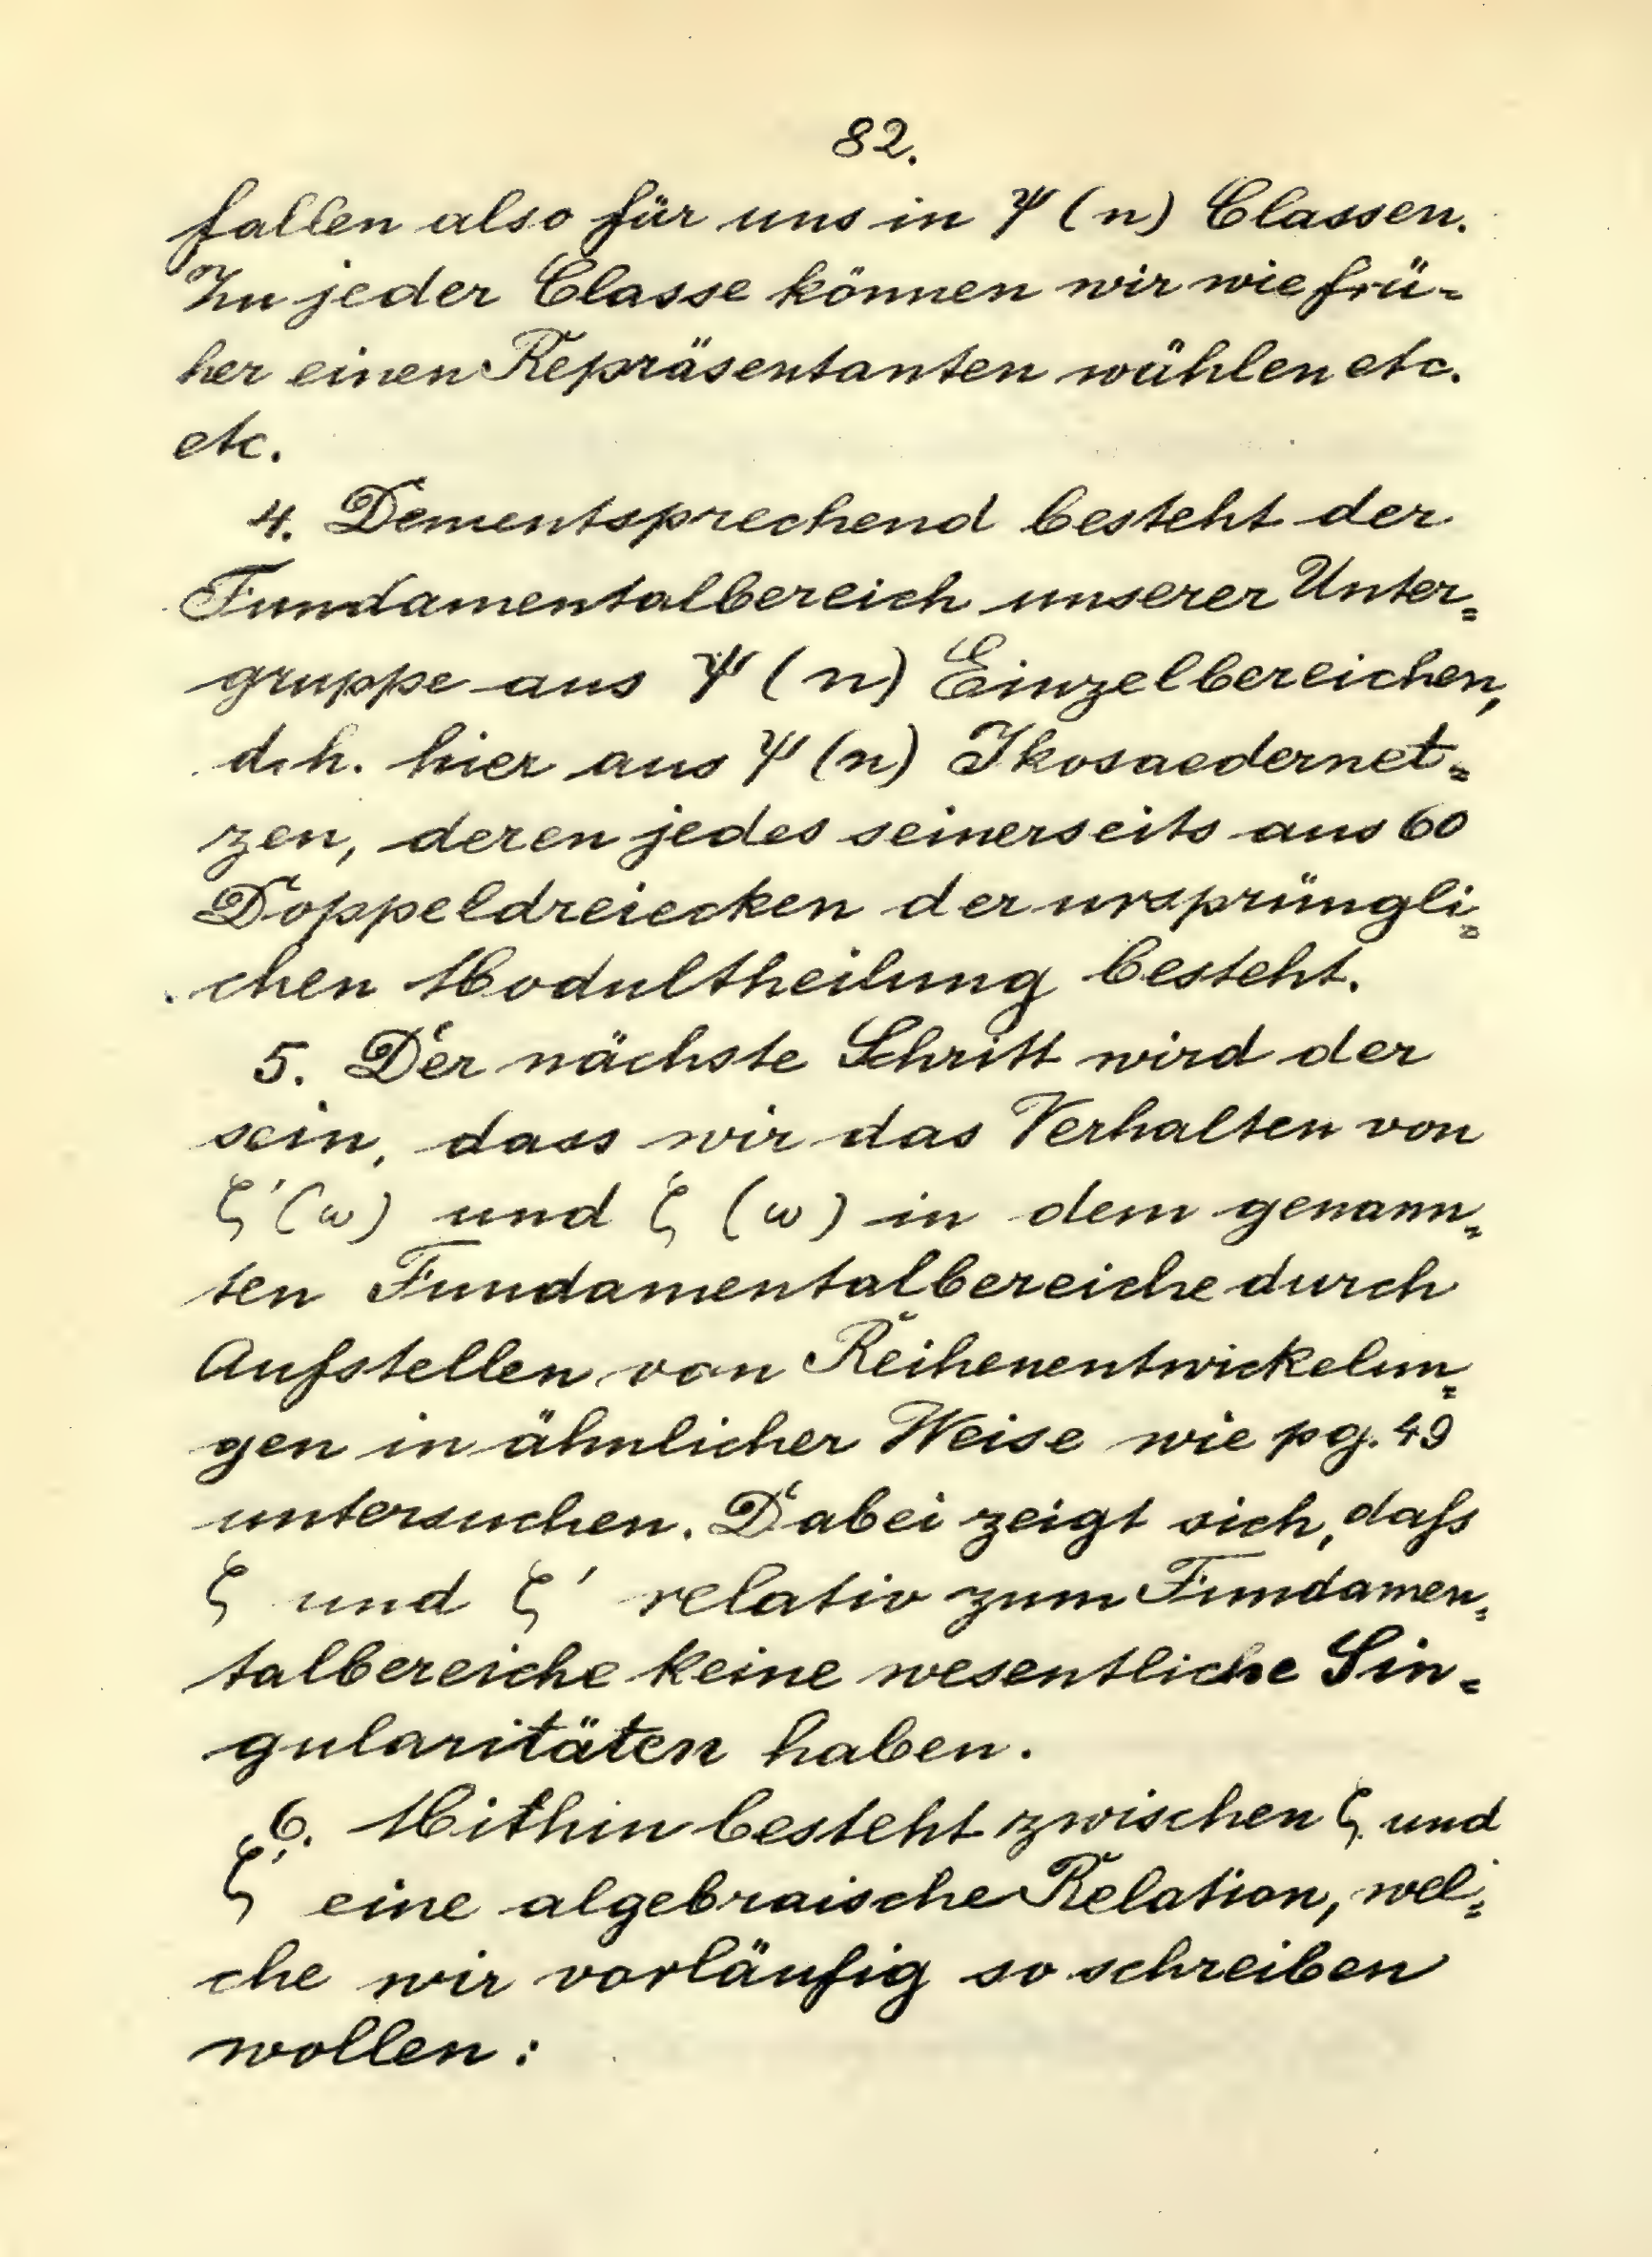 82.
fallen also für uns in ψ (n) Classen.
In jeder Classe können wir wie frü-
her einen Repräsentanten wählen etc.
etc.
4. Dementsprechend besteht der
Fundamentalbereich unserer Unter-
gruppe aus ψ (n) Einzelbereichen,
d. h. hier aus ψ (n) Ikosaedernet-
zen, deren jedes seinerseits aus 60
Doppeldreiecken der ursprüngli-
chen Modultheilung besteht.
5. Der nächste Schritt wird der
sein, dass wir das Verhalten von
ζ'(ω) und ζ (ω) in dem genann-
ten Fundamentalbereiche durch
Aufstellen von Reihenentwickelun-
gen in ähnlicher Weise wie pg. 49
untersuchen. Dabei zeigt sich, daſs
ζ und ζ' relativ zum Fundamen-
talbereiche keine wesentliche Sin-
gularitäten haben.
6. Mithin besteht zwischen ζ und
ζ' eine algebraische Relation, wel-
che wir vorläufig so schreiben
wollen: